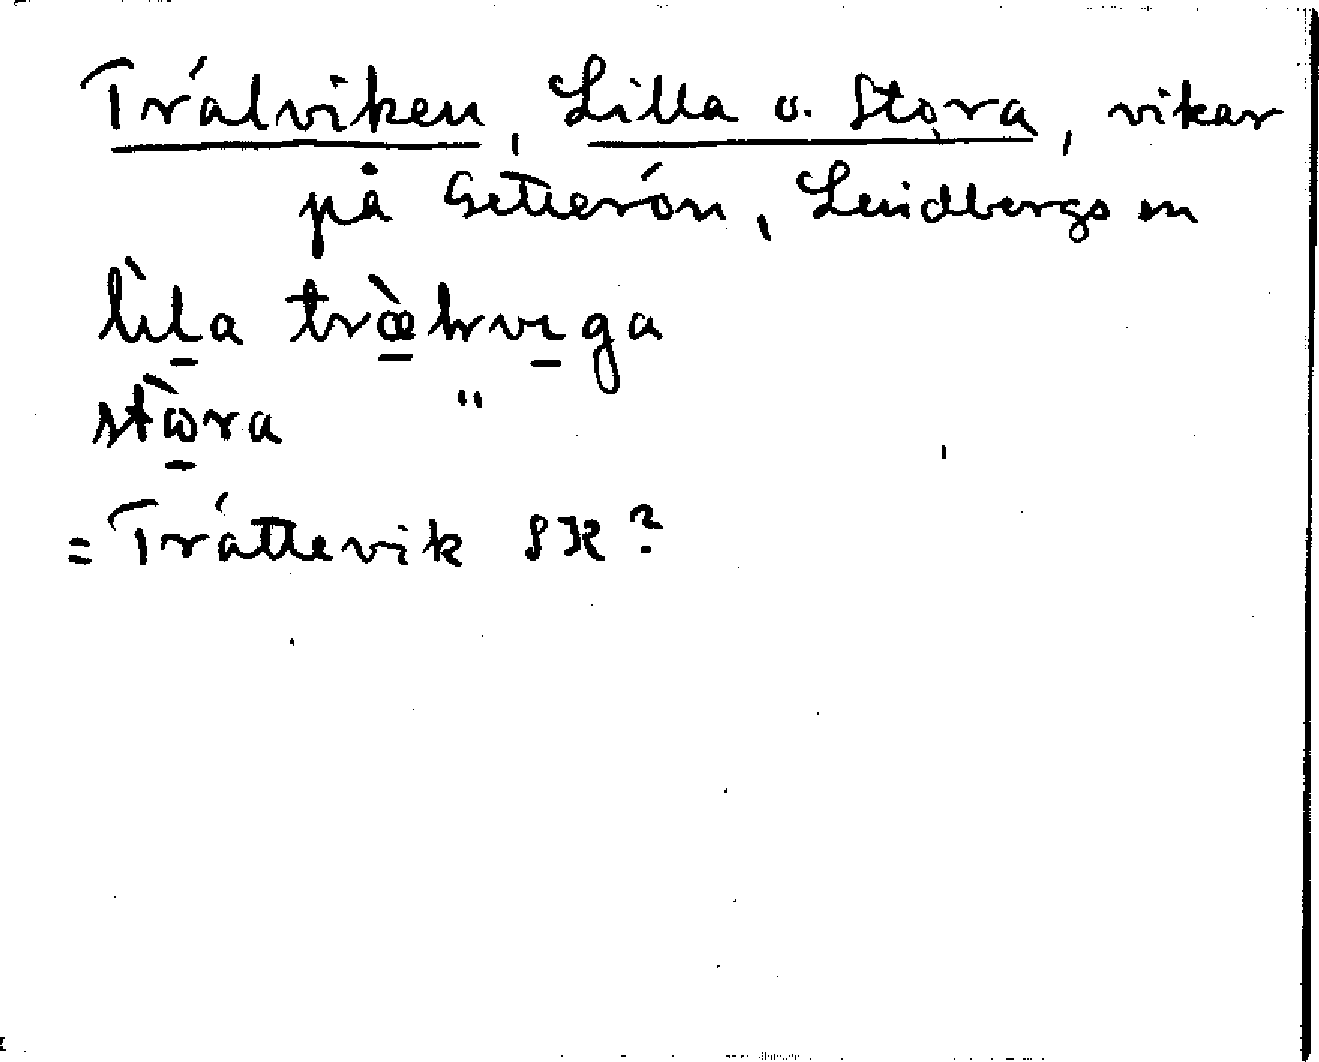 Trälviken, Lilla o. Stora, vikar
på Getterön, Lindbergs sn
lìla træ̀lvıga
stòra "
= Trättevik SK?